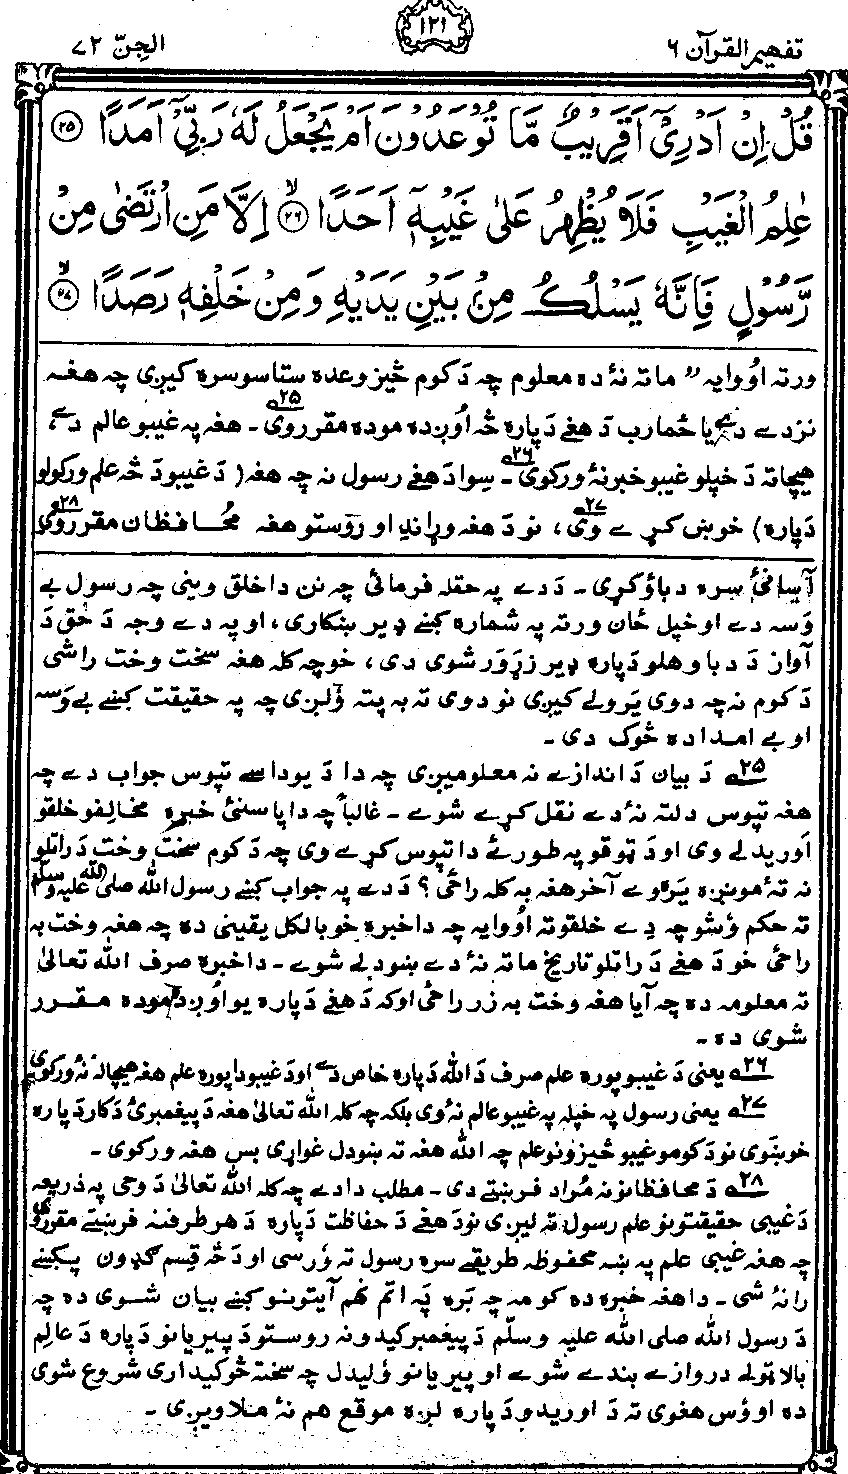 تفهيم القرآن ۶
۱۲۱
الجِنّ ۷۲
قُلْ اِنْ اَدْرِیْٓ اَقَرِیْبٌ مَّا تُوْعَدُوْنَ اَمْ یَجْعَلُ لَهٗ رَبِّیْٓ اَمَدًا ﴿۲۵﴾
عٰلِمُ الْغَیْبِ فَلَا یُظْهِرُ عَلٰی غَیْبِهٖٓ اَحَدًا ﴿۲۶﴾ اِلَّا مَنِ ارْتَضٰی مِنْ
رَّسُوْلٍ فَاِنَّهٗ یَسْلُكُ مِنْۢ بَیْنِ یَدَیْهِ وَمِنْ خَلْفِهٖ رَصَدًا ﴿۲۷﴾
ورته اُووايه " ما ته نۀ ده معلوم چه دَ كوم څيز وعده ستاسو سره كيږى چه هغه
نزدے دے يا ځما رب دَ هغے دَپاره څه اُوږده موده مقرروى ۲۵ـ هغه په غيبو عالم دے،
هيچاته دَ خپلو غيبو خبر نۀ وركوى ۲۶ـ سوا دَ هغے رسول نه چه هغه (دَ غيبو دَ څه علم وركولو
دَپاره) خوښ كړے وى ۲۷، نو دَ هغه وړاندِ او روستو هغه محافظان مقرروى ۲۸
آسانئ سره دباؤ كړى ـ دَ دے په حقله فرمائى چه نن دا خلق وينى چه رسول بے
وَسه دے او خپل ځان ورته په شماره كښے ډير ښكارى، او په دے وجه دَ حق دَ
آواز دَ دبا وهلو دَپاره ډير زړَوَر شوى دى، خو چه كله هغه سخت وخت راشى
دَ كوم نه چه دوى يَرولے كيږى نو دوى ته به پته وُلږى چه په حقيقت كښے بے وَسه
او بے امداده څوک دى ـ
۲۵ دَ بيان دَ اندازے نه معلوميږى چه دا دَ يو داسے تپوس جواب دے چه
هغه تپوس دلته نۀ دے نقل كړے شوے ـ غالباً چه دا پاسنئ خبره مخالفو خلقو
اَوريدلے وى او دَ ټوقو په طور ئے دا تپوس كړے وى چه دَ كوم سخت وخت دَ راتلو
نه تۀ مونږه يَرَوے آخر هغه به كله راځى؟ دَ دے په جواب كښے رسول الله صلى الله عليه وسلم
ته حكم وُشو چه دِے خلقو ته اُووايه چه دا خبره خو بالكل يقينى ده چه هغه وخت به
راځى خو دَ هغے دَ راتلو تاريخ ما ته نۀ دے ښودلے شوے ـ دا خبره صرف الله تعالىٰ
ته معلومه ده چه آيا هغه وخت به زر راځى او كه دَ هغے دَپاره يو اُوږده موده مقرر
شوى ده ـ
۲۶ يعنى دَ غيبو پوره علم صرف دَ الله دَپاره خاص دے او دَ غيبو دا پوره علم هغه هيچاله نۀ وركوى
۲۷ يعنى رسول په خپله په غيبو عالم نۀ وى بلكه چه كله الله تعالىٰ هغه دَ پيغمبرئ دَ كار دَپاره
خوښوى نو دَ كومو غيبو څيزونو علم چه الله هغه ته ښودل غواړى بس هغه وركوى ـ
۲۸ دَ محافظانو نه مُراد فرښتے دى ـ مطلب دا دے چه كله الله تعالىٰ دَ وحى په ذريعه
دَ غيبى حقيقتونو علم رسول ته ليږى نو دَ هغے دَ حفاظت دَپاره دَ هر طرف نه فرښتے مقرروى
چه هغه غيبى علم په ښه محفوظه طريقے سره رسول ته وُرسى او دَ څه قِسم ګډون پكښے
را نۀ شى ـ دا هغه خبره ده كومه چه بَره په اتم نهم آيتونو كښے بيان شوى ده چه
دَ رسول الله صلى الله عليه وسلّم دَ پيغمبر كيدو نه روستو دَ پيريانو دَپاره دَ عالم
بالا ټولے دروازے بندے شوے او پيريانو وُليدل چه سخته څوكيدارى شروع شوى
ده او وُس هغوى ته دَ اوريدو دَپاره لږه موقع هم نۀ ملاويږى ـ